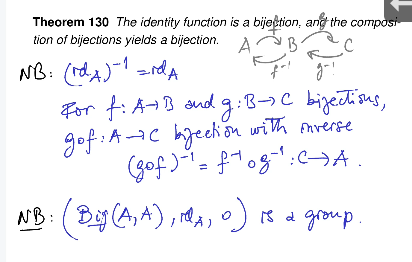 Theorem 130 The identity function is a bijection, and the composi-
tion of bijections yields a bijection.
A B C
f g
f⁻¹ g⁻¹
NB: (id_A)⁻¹ = id_A
For f: A→B and g: B→C bijections,
gof: A→C bijection with inverse
(gof)⁻¹ = f⁻¹ o g⁻¹ : C→A.
NB: (Bij(A,A), id_A, o) is a group.